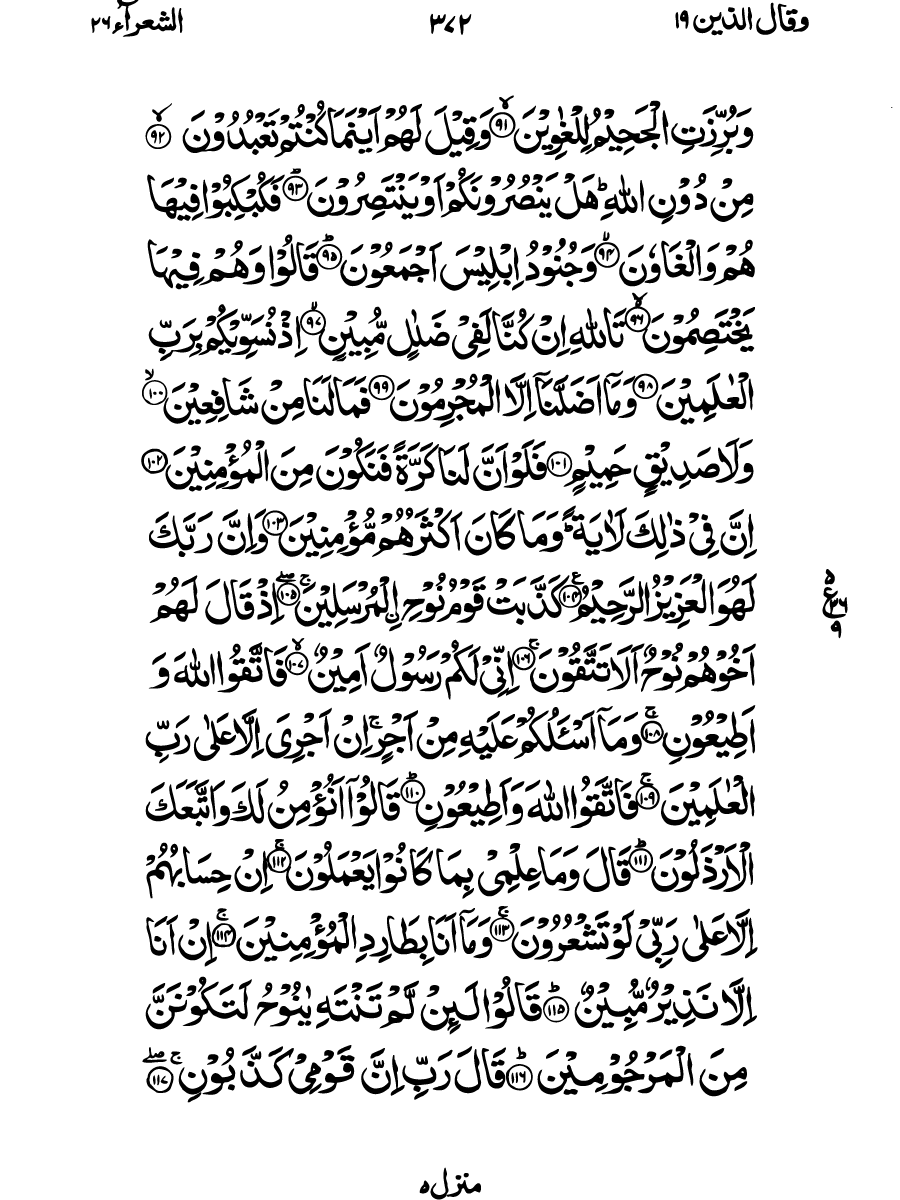 وقال الذین ۱۹ ۳۷۲ الشعرآء ۲۶
وَبُرِّزَتِ الْجَحِیْمُ لِلْغٰوِیْنَ ﴿۹۱﴾ۙ وَقِیْلَ لَهُمْ اَیْنَمَا كُنْتُمْ تَعْبُدُوْنَ ﴿۹۲﴾ۙ
مِنْ دُوْنِ اللّٰهِؕ هَلْ یَنْصُرُوْنَكُمْ اَوْ یَنْتَصِرُوْنَ ﴿۹۳﴾ؕ فَكُبْكِبُوْا فِیْهَا
هُمْ وَالْغَاوٗنَ ﴿۹۴﴾ۙ وَجُنُوْدُ اِبْلِیْسَ اَجْمَعُوْنَ ﴿۹۵﴾ؕ قَالُوْا وَهُمْ فِیْهَا
یَخْتَصِمُوْنَ ﴿۹۶﴾ۙ تَاللّٰهِ اِنْ كُنَّا لَفِیْ ضَلٰلٍ مُّبِیْنٍ ﴿۹۷﴾ۙ اِذْ نُسَوِّیْكُمْ بِرَبِّ
الْعٰلَمِیْنَ ﴿۹۸﴾ وَمَاۤ اَضَلَّنَاۤ اِلَّا الْمُجْرِمُوْنَ ﴿۹۹﴾ فَمَا لَنَا مِنْ شَافِعِیْنَ ﴿۱۰۰﴾ۙ
وَلَا صَدِیْقٍ حَمِیْمٍ ﴿۱۰۱﴾ فَلَوْ اَنَّ لَنَا كَرَّةً فَنَكُوْنَ مِنَ الْمُؤْمِنِیْنَ ﴿۱۰۲﴾
اِنَّ فِیْ ذٰلِكَ لَاٰیَةًؕ وَمَا كَانَ اَكْثَرُهُمْ مُّؤْمِنِیْنَ ﴿۱۰۳﴾ وَاِنَّ رَبَّكَ
لَهُوَ الْعَزِیْزُ الرَّحِیْمُ ﴿۱۰۴﴾ۧ كَذَّبَتْ قَوْمُ نُوْحِ ن ِالْمُرْسَلِیْنَ ﴿۱۰۵﴾ۚۖ اِذْ قَالَ لَهُمْ
اَخُوْهُمْ نُوْحٌ اَلَا تَتَّقُوْنَ ﴿۱۰۶﴾ۚ اِنِّیْ لَكُمْ رَسُوْلٌ اَمِیْنٌ ﴿۱۰۷﴾ۙ فَاتَّقُوا اللّٰهَ وَ
اَطِیْعُوْنِ ﴿۱۰۸﴾ۚ وَمَاۤ اَسْـَٔلُكُمْ عَلَیْهِ مِنْ اَجْرٍۚ اِنْ اَجْرِیَ اِلَّا عَلٰی رَبِّ
الْعٰلَمِیْنَ ﴿۱۰۹﴾ۚ فَاتَّقُوا اللّٰهَ وَاَطِیْعُوْنِ ﴿۱۱۰﴾ؕ قَالُوْۤا اَنُؤْمِنُ لَكَ وَاتَّبَعَكَ
الْاَرْذَلُوْنَ ﴿۱۱۱﴾ؕ قَالَ وَمَا عِلْمِیْ بِمَا كَانُوْا یَعْمَلُوْنَ ﴿۱۱۲﴾ۚ اِنْ حِسَابُهُمْ
اِلَّا عَلٰی رَبِّیْ لَوْ تَشْعُرُوْنَ ﴿۱۱۳﴾ۚ وَمَاۤ اَنَا بِطَارِدِ الْمُؤْمِنِیْنَ ﴿۱۱۴﴾ۚ اِنْ اَنَا
اِلَّا نَذِیْرٌ مُّبِیْنٌ ﴿۱۱۵﴾ؕ قَالُوْا لَىِٕنْ لَّمْ تَنْتَهِ یٰنُوْحُ لَتَكُوْنَنَّ
مِنَ الْمَرْجُوْمِیْنَ ﴿۱۱۶﴾ؕ قَالَ رَبِّ اِنَّ قَوْمِیْ كَذَّبُوْنِ ﴿۱۱۷﴾ۚۖ
۵
ع ۳۶
۹
منزل ۵